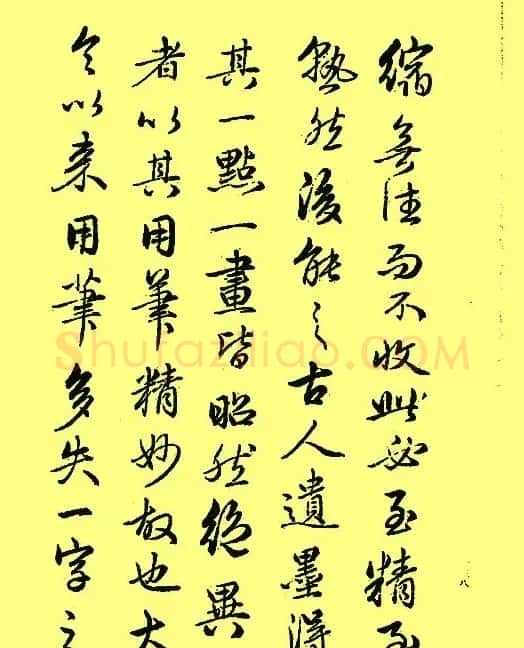 縮無往而不收此必至精至
熟然後能之古人遺墨得
其一點一畫皆昭然絕異
者以其用筆精妙故也大
令以來用筆多失一字之
Shufaziliao.COM